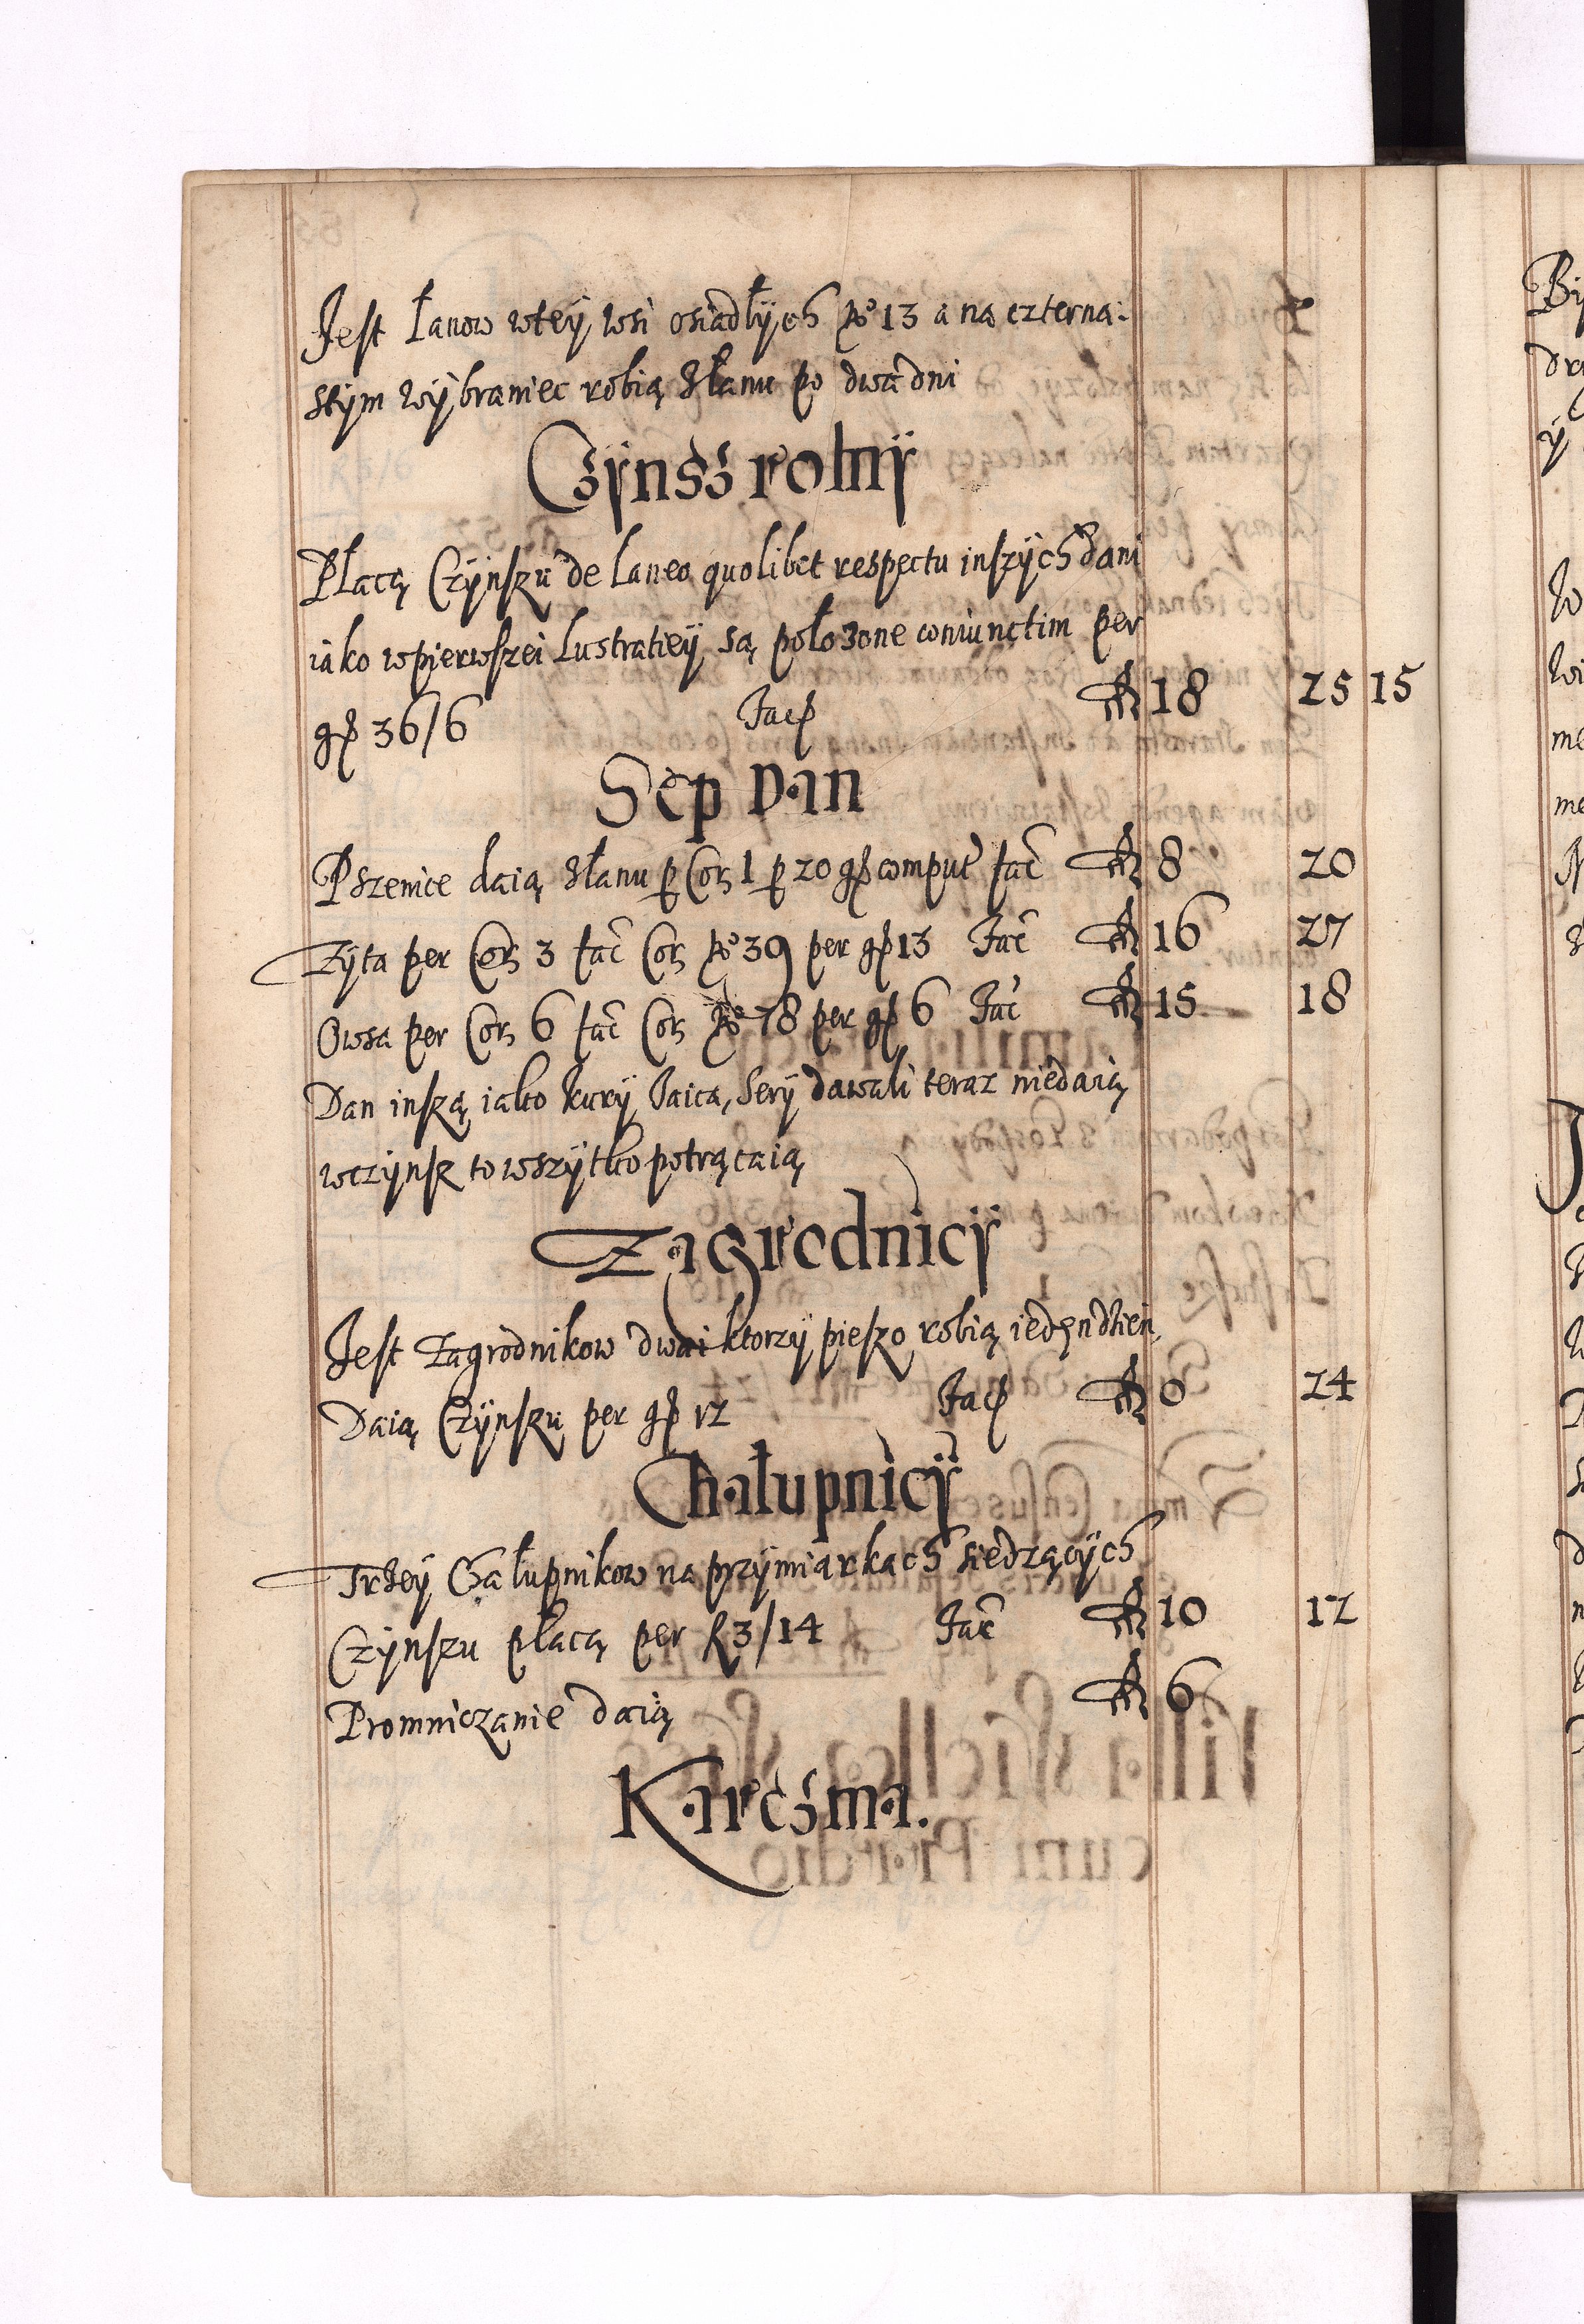 Jest Łanow wteÿ wsi osiadłÿch No 13 a na czterna:
stÿm wÿbraniec robią złanu po dwa dni
Czÿnsz rolnÿ
Płacą Czÿnszu de laneo quolibet respectu inszÿch dani
iako wpierwszei Lustratieÿ są położone coniunctim per
gr 36/6 facit fl 18 25 15
Sep Dan
Pszenice daią złanu p Cor 1 p 20 gr comput fac fl 8 20
Zÿta per Cor 3 fac Cor No 39 per gr 13 fac fl 16 27
Owsa per Cor 6 fac Cor No 78 per gr 6 fac fl 15 18
Dan inszą iako kurÿ Jaica, Serÿ dawali teraz niedaią
wczÿnsz to wszÿtko potrącaią
Zagrodnicÿ
Jest Zagrodnikow dwai ktorzÿ pieszo robią ieden dzien,
Daią Czÿnszu per gr 12 facit fl 0 24
Chałupnicÿ
Trzeÿ Chałupnikow na przÿmiarkach siedzącÿch
Czÿnszu płacą per fl 3/14 fac fl 10 12
Promniczanie daią fl 6
Karczma.